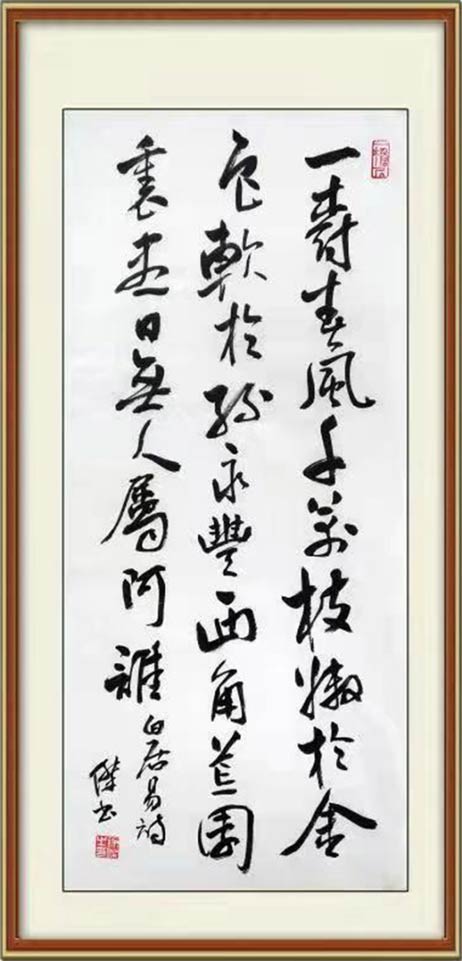 一樹春風千萬枝嫩於金
色軟於絲永豐西角荒園
裏盡日無人屬阿誰
白居易詩
傑書